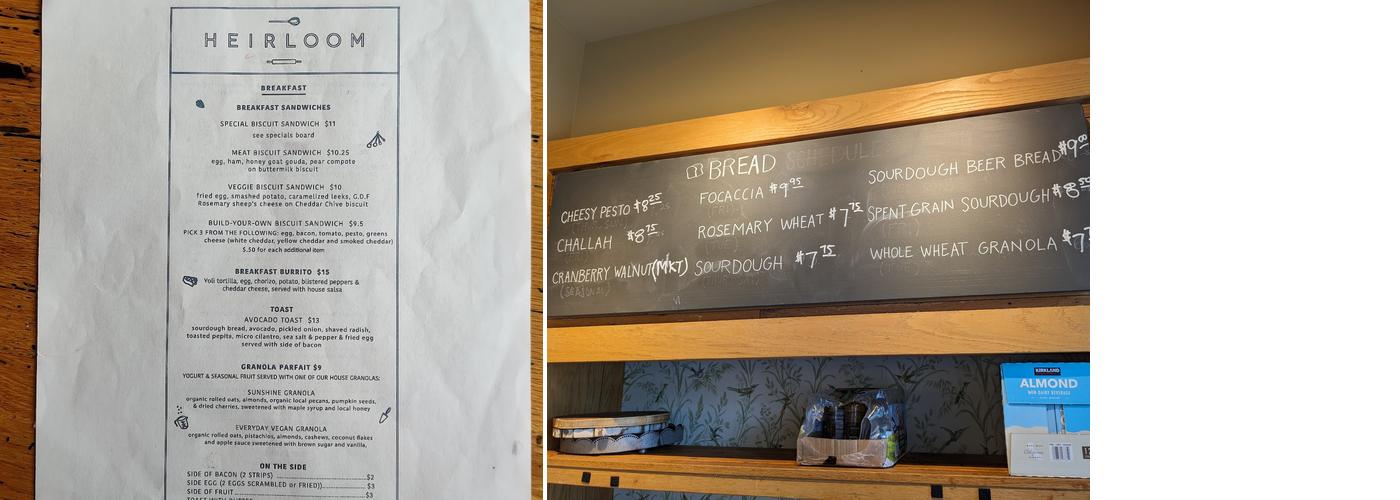 HEIRLOOM
BREAKFAST
BREAKFAST SANDWICHES
SPECIAL BISCUIT SANDWICH $11
see specials board
MEAT BISCUIT SANDWICH $10.25
egg, ham, honey goat gouda, pear compote
on buttermilk biscuit
VEGGIE BISCUIT SANDWICH $10
fried egg, smashed potato, caramelized leeks, G.D.F
Rosemary sheep's cheese on Cheddar Chive biscuit
BUILD-YOUR-OWN BISCUIT SANDWICH $9.5
PICK 3 FROM THE FOLLOWING: egg, bacon, tomato, pesto, greens
cheese (white cheddar, yellow cheddar and smoked cheddar)
$.50 for each additional item
BREAKFAST BURRITO $15
Yoli tortilla, egg, chorizo, potato, blistered peppers &
cheddar cheese, served with house salsa
TOAST
AVOCADO TOAST $13
sourdough bread, avocado, pickled onion, shaved radish,
toasted pepita, micro cilantro, sea salt & pepper & fried egg
served with side of bacon
GRANOLA PARFAIT $9
YOGURT & SEASONAL FRUIT SERVED WITH ONE OF OUR HOUSE GRANOLAS:
SUNSHINE GRANOLA
organic rolled oats, almonds, organic local pecans, pumpkin seeds,
& dried cherries, sweetened with maple syrup and local honey
EVERYDAY VEGAN GRANOLA
organic rolled oats, pistachios, almonds, cashews, coconut flakes
and apple sauce sweetened with brown sugar and vanilla,
ON THE SIDE
SIDE OF BACON (2 STRIPS) $2
SIDE EGG (2 EGGS SCRAMBLED or FRIED)) $3
SIDE OF FRUIT $3
BREAD SCHEDULE
CHEESY PESTO $8.25
CHALLAH $8.75
CRANBERRY WALNUT (MKT)
(SEASONAL)
FOCACCIA $9.95
(FRI)
ROSEMARY WHEAT $7.75
SOURDOUGH $7.75
SOURDOUGH BEER BREAD $9.00
SPENT GRAIN SOURDOUGH $8.50
(FRI)
WHOLE WHEAT GRANOLA
KIRKLAND
ALMOND
NON-DAIRY BEVERAGE